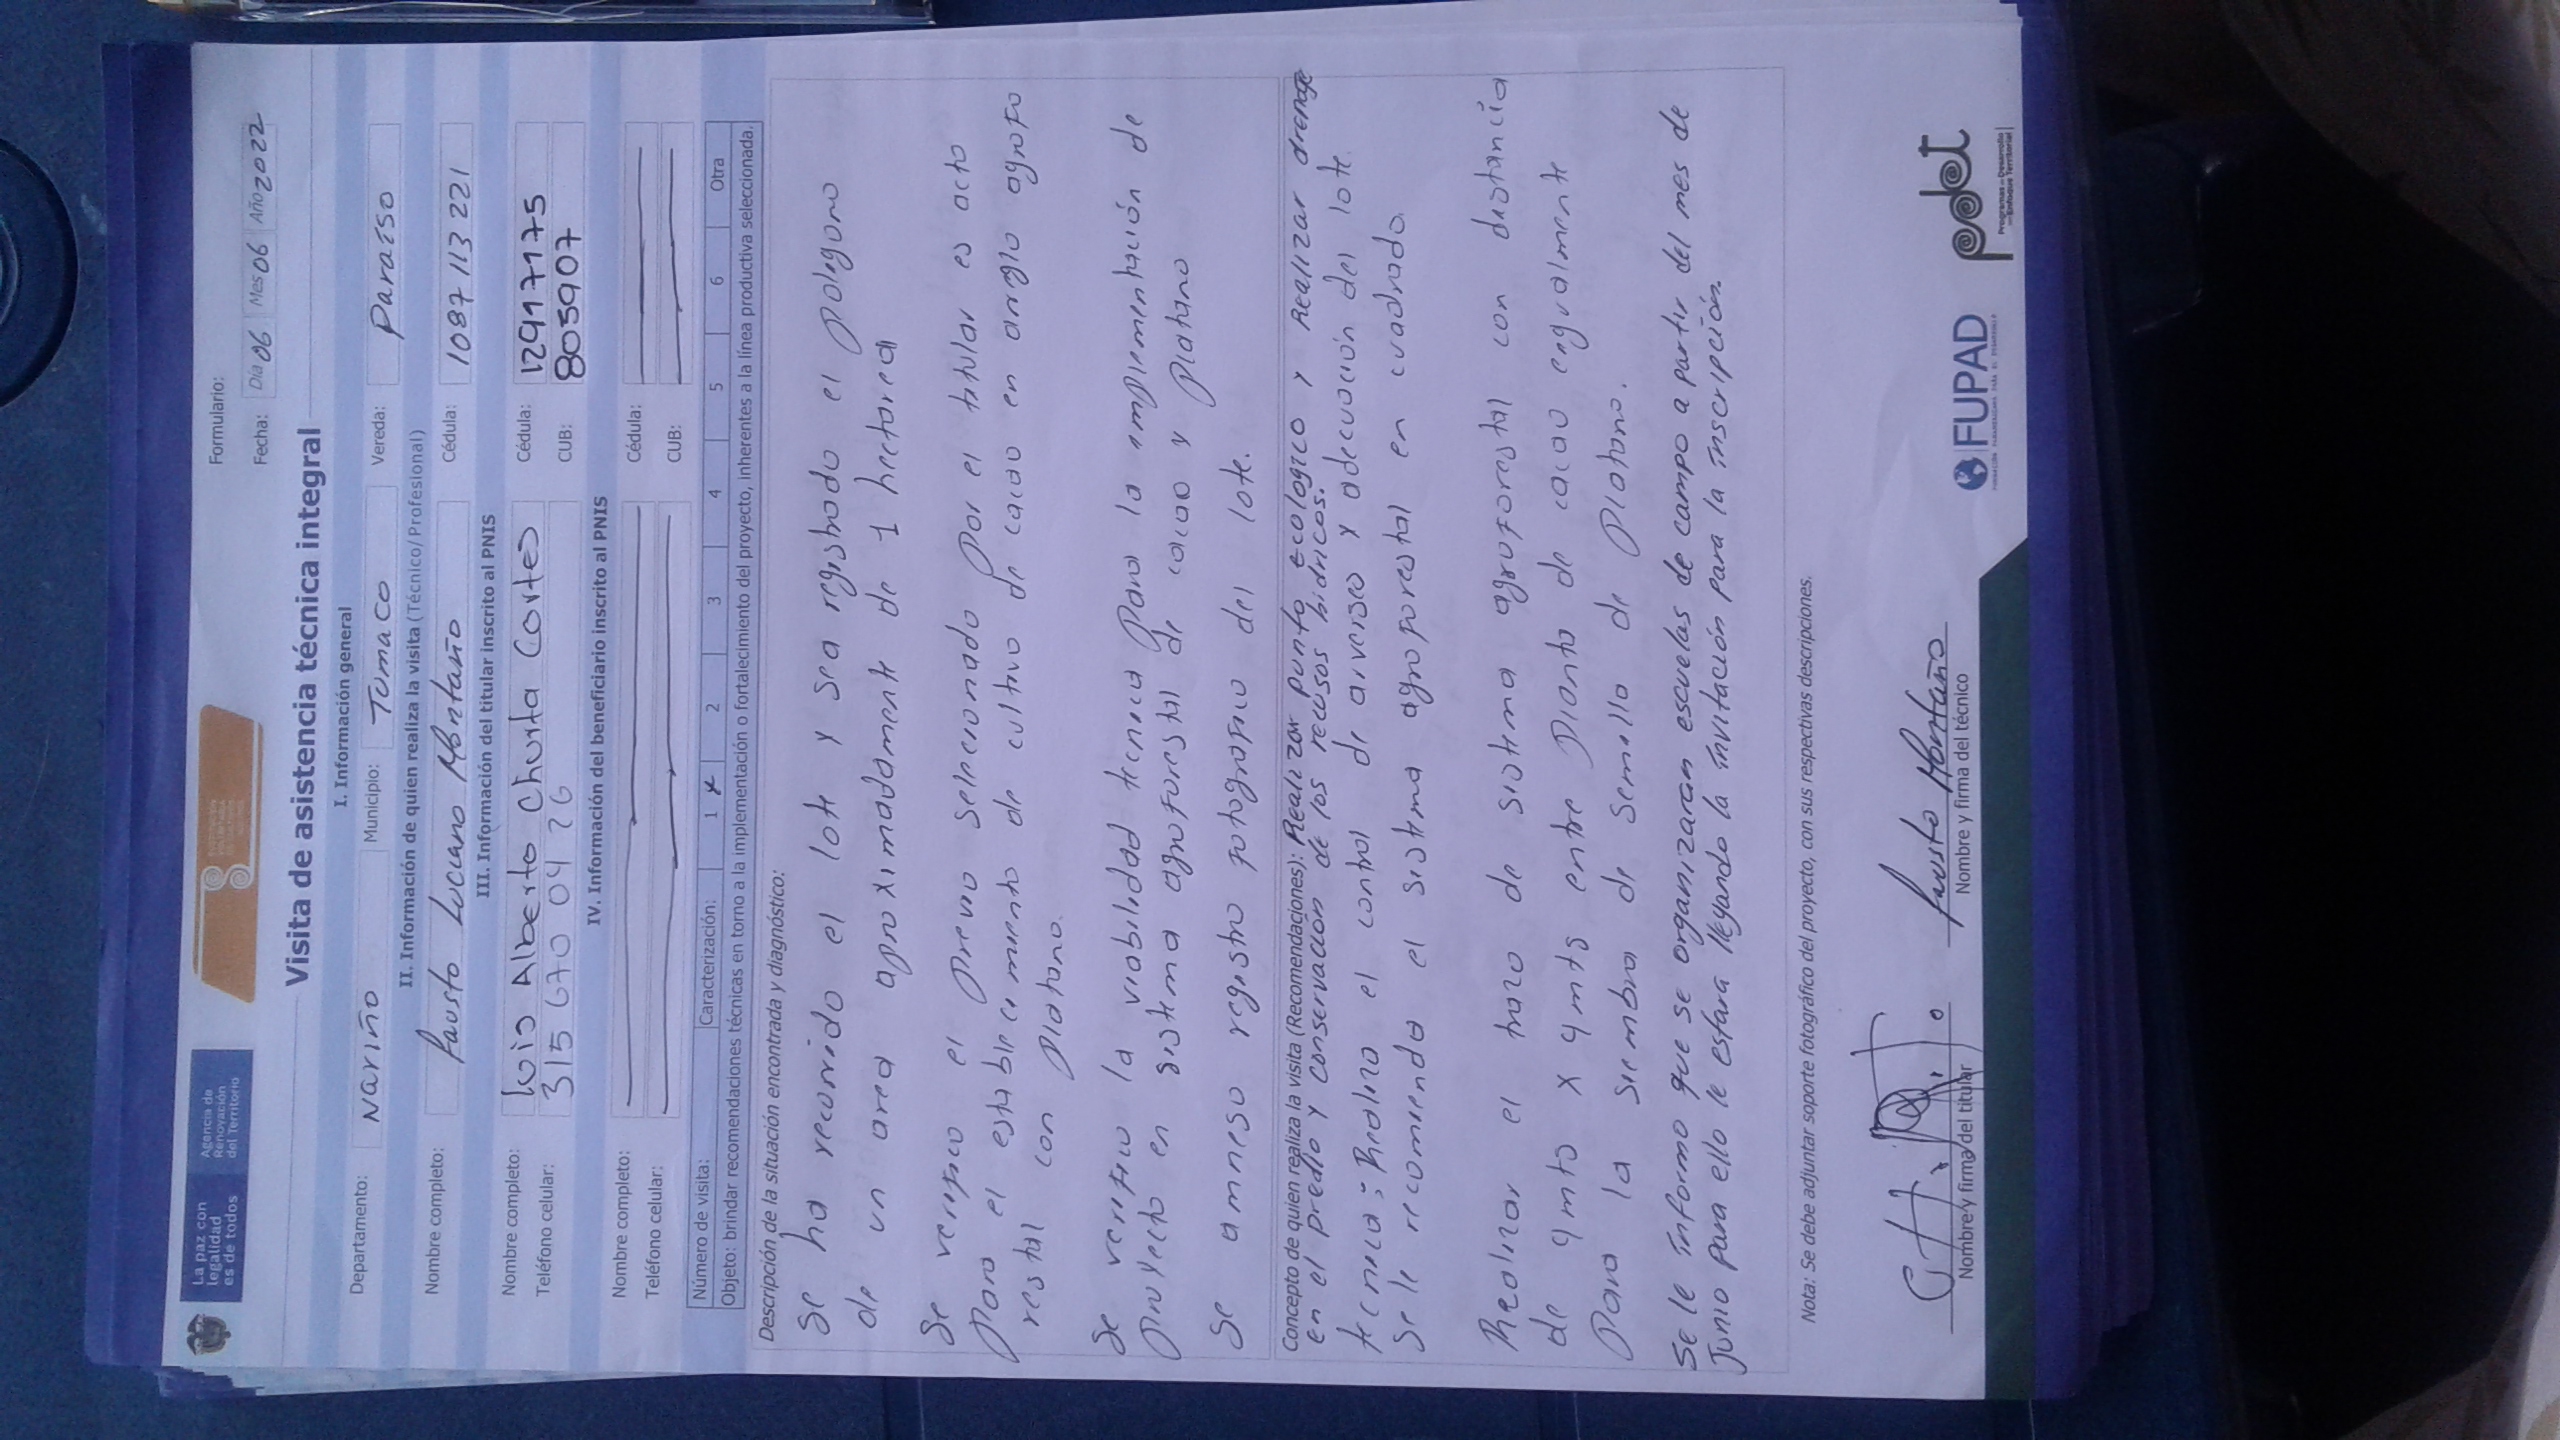 La paz con
legalidad
es de todos
Agencia de
Renovación
del Territorio
Formulario:
Fecha: Día 06 Mes 06 Año 2022
Visita de asistencia técnica integral
I. Información general
Departamento: Nariño Municipio: Tumaco Vereda: Paraíso
II. Información de quien realiza la visita (Técnico/Profesional)
Nombre completo: Fausto Lucano Montaño Cédula: 1087 113 221
III. Información del titular inscrito al PNIS
Nombre completo: Luis Alberto Churta Cortes Cédula: 12917175
Teléfono celular: 315 670 04 26 CUB: 805907
IV. Información del beneficiario inscrito al PNIS
Nombre completo: Cédula:
Teléfono celular: CUB:
Número de visita: Caracterización: 1 x 2 3 4 5 6 Otra
Objeto: brindar recomendaciones técnicas en torno a la implementación o fortalecimiento del proyecto, inherentes a la línea productiva seleccionada.
Descripción de la situación encontrada y diagnóstico:
Se ha recorrido el lote y sea registrado el poligono
de un area aproximadamente de 1 hectarea
Se verifico el previo seleccionado por el titular es acto
para el establecimiento de cultivo de cacao en arreglo agrofo
restal con platano.
Se verifico la viabilidad tecnica para la implementación de
proyecto en sistema agroforestal de cacao y platano
Se anneso registro fotografico del lote.
Concepto de quien realiza la visita (Recomendaciones): Realizar punto ecologico y Realizar drenage
en el predio y conservación de los recusos hidricos.
tecnica; Realizo el control de arverses y adecuación del lote
Se le recomienda el sistema agroforestal en cuadrado.
Realizar el trazo de sistema agroforestal con distancia
de 4mts x 4mts entre planta de cacao engualmente
para la siembra de semilla de platano.
Se le informo que se organizaran escuelas de campo a partir del mes de
Junio para ello le estara llegando la invitación para la inscripción.
Nota: Se debe adjuntar soporte fotográfico del proyecto, con sus respectivas descripciones.
Fausto Montaño
Nombre y firma del titular Nombre y firma del técnico
FUPAD
FUNDACIÓN PANAMERICANA PARA EL DESARROLLO
pdet
Programas de Desarrollo
con Enfoque Territorial